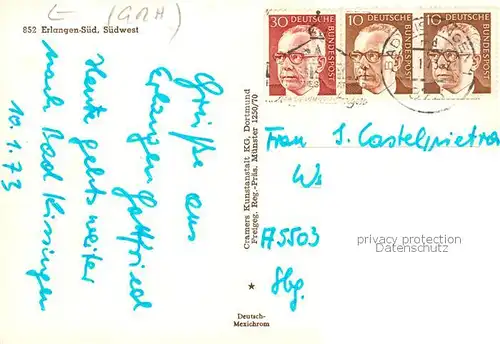 (GRH)
852 Erlangen-Süd, Südwest
Grüße aus
Erlangen Gottfried
Heute gehts weiter
nach Bad Kissingen
10.1.73
Cramers Kunstanstalt KG, Dortmund
Freigeg. Reg.-Präs. Münster 1250/70
Deutsch-
Mexichrom
30 DEUTSCHE BUNDESPOST
10 DEUTSCHE BUNDESPOST
10 DEUTSCHE BUNDESPOST
Frau I. Castelpietra
W
A 5503
Hbg.
privacy protection
Datenschutz